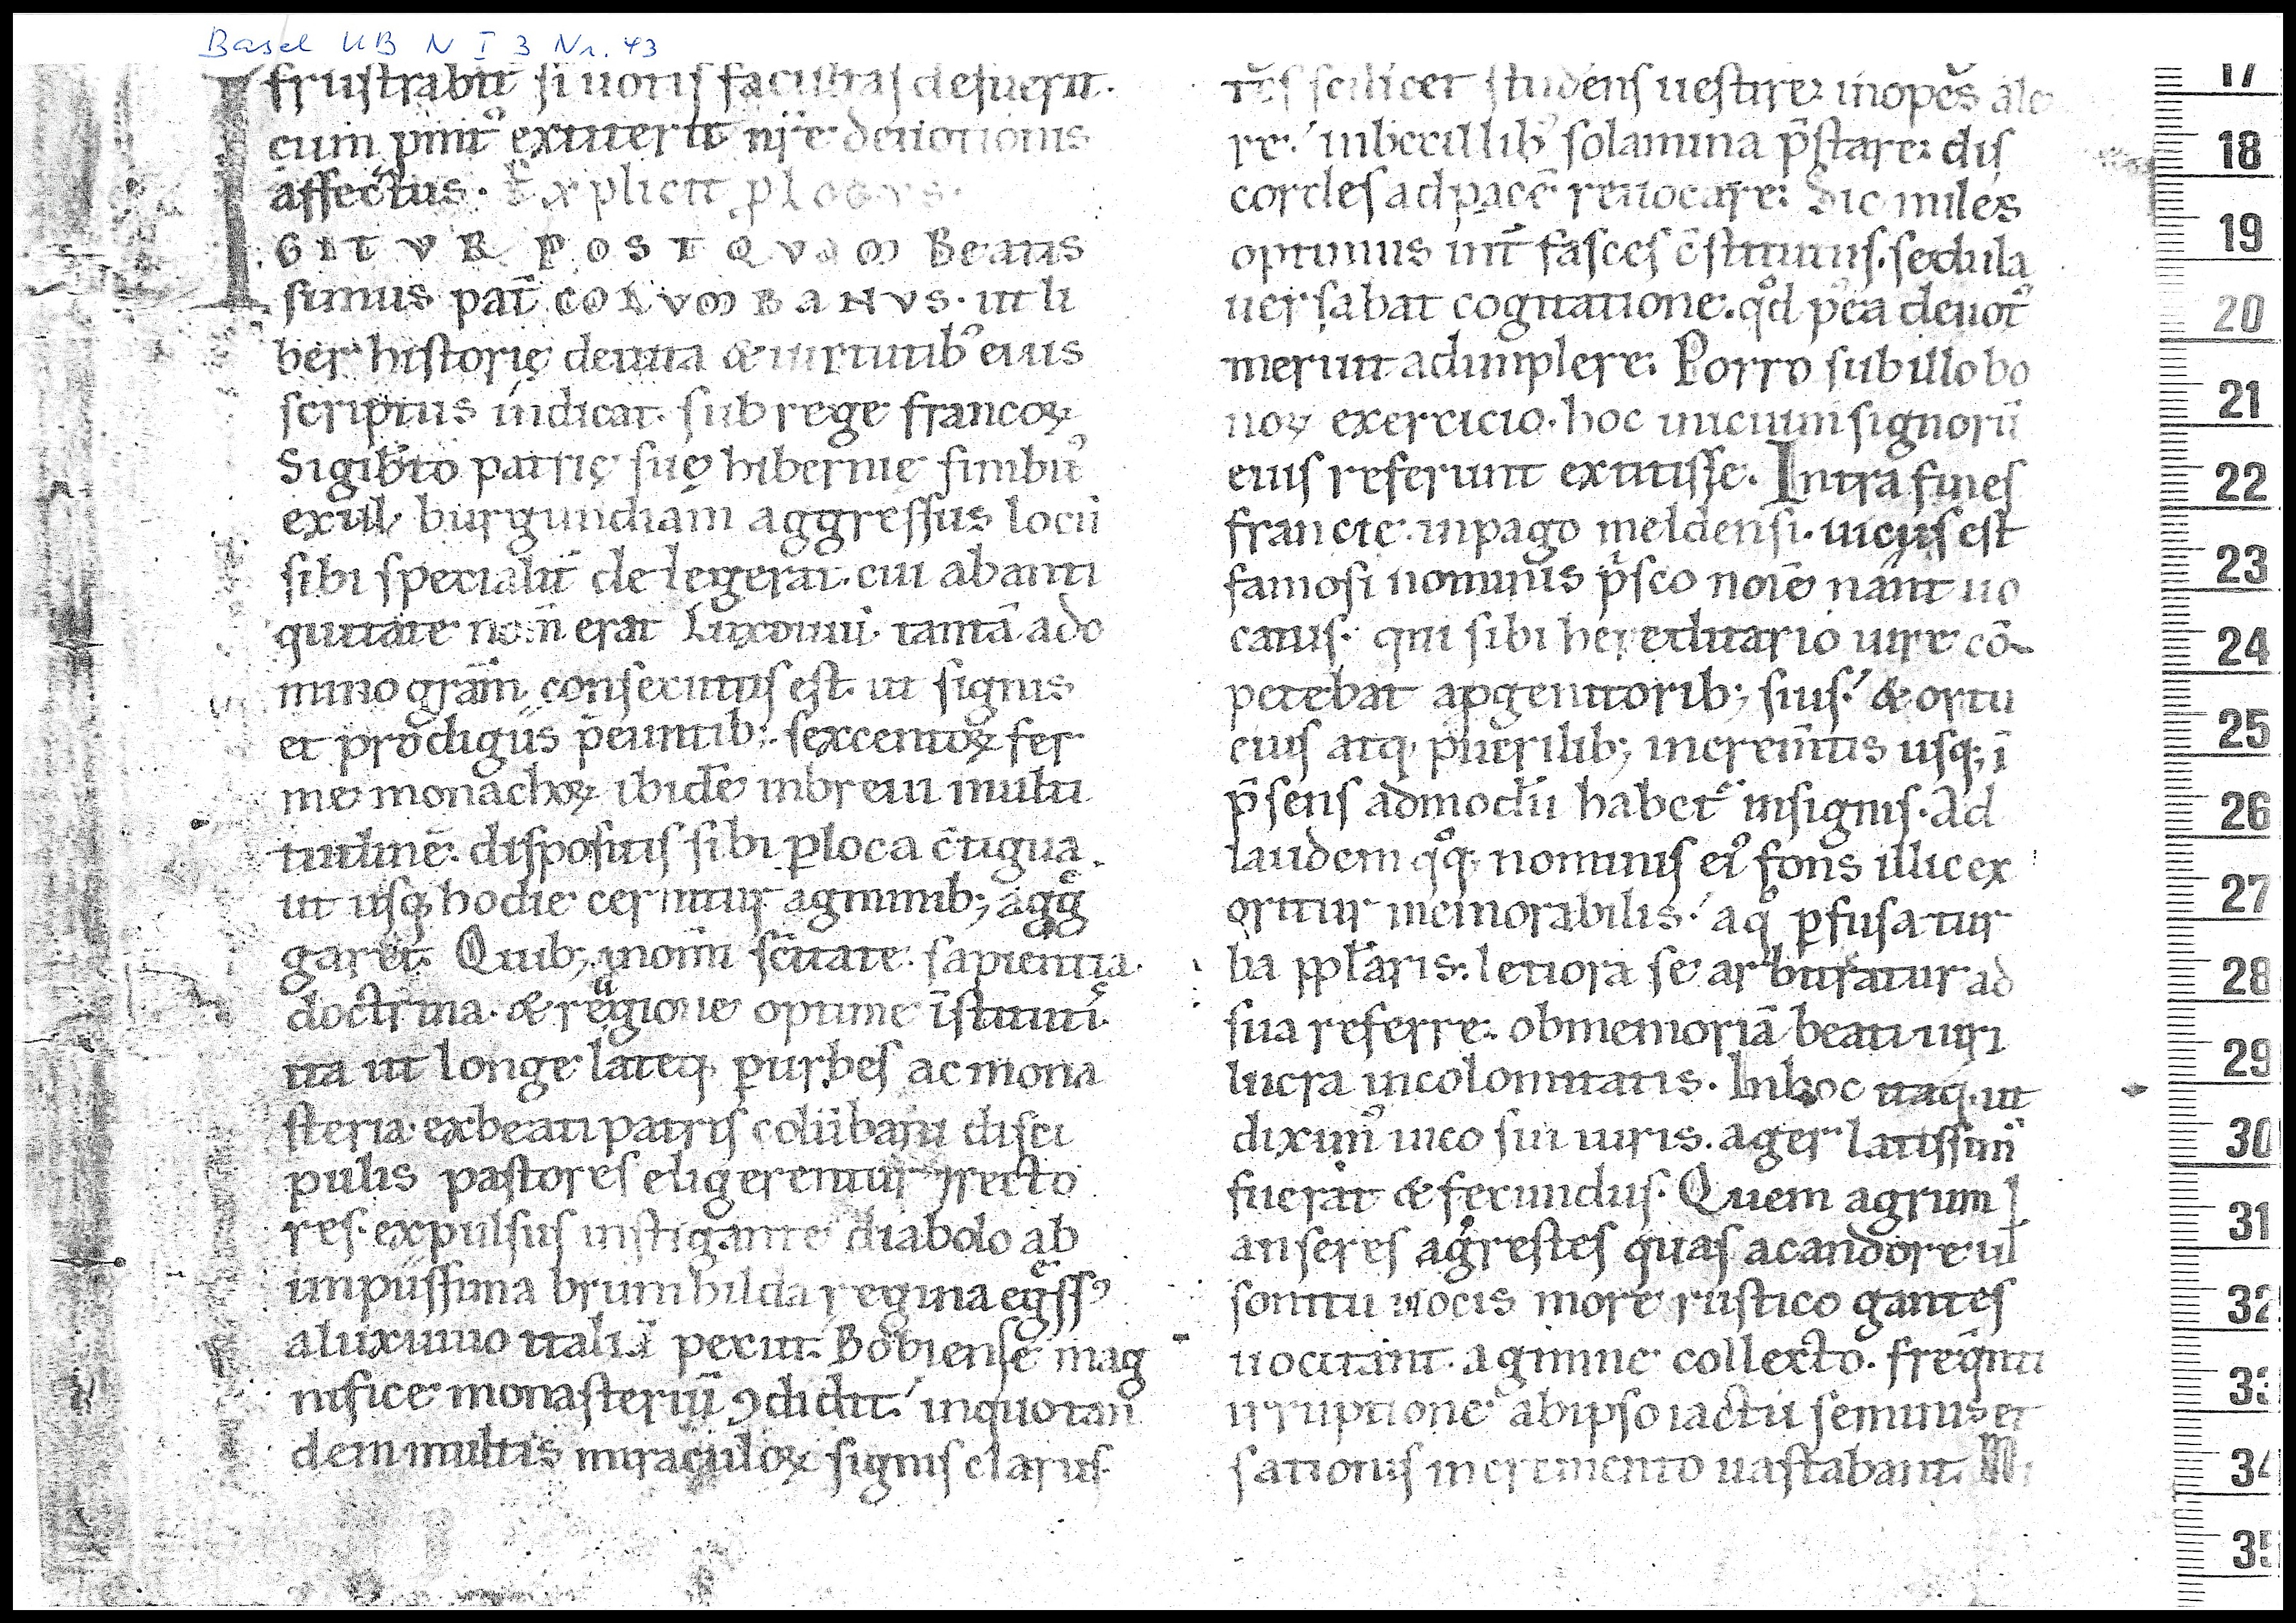 Basel UB N I 3 Nr. 43
frustrabit̄ si uotis facultas defuerit.
cum pmit᷒ extiterit nr̄e deuotionis
affectus. Explicit plogus.
IGITVR POSTQVAM Beatis
simus pat̄ COLVMBANVS. ut li
ber historię de uita & uirtutib᷒ eius
scriptus indicat. sub rege francoꝝ
Sigib̄to patrię suę hibernie finibu᷒
exul, burgundiam aggressus locū
sibi specialit̄ delegerat. cui ab anti
quitate nom̄ erat Luxouiū. tantā a do
mino grām consecutus est. ut signis
et prodigiis p̄euntib; sexcentoꝝ fer
me monachoꝝ ibidē in breui multi
tudinē. dispositis sibi ꝑ loca c̄tigua.
ut usq; hodie cernitur agminib; agg̃
garet. Quib; in om̄i sc̄itate. sapientia.
doctrina. & religione optime īstituti.
ita ut longe lateq; ꝑ urbes ac mona
steria. ex beati patris colūbani disci
pulis pastores eligerentur ⁊ recto
res. expulsus instigante diabolo ab
impiissima brunihilda regina eg̃ss᷒
a luxuuio italiā petiit. Bobiense mag
nifice monasteriū ꝯdidit. in quo tan
dem multis miraculoꝝ signis clarus
tēs scilicet studens uestire. inopes ale
re. inbecillib᷒ solamina p̄stare. dis
cordes ad pacē reuocare. Sic miles
optimus int̄ fasces c̄stitutus. sedula
uersabat cogitatione. qͦd p᷒ea deuot᷒
meruit adimplere. Porro sub illo bo
noꝝ exercicio. hoc unicum signorū
eius referunt extitisse. Intra fines
francie. in pago meldensi. uicus est
famosi nominis p̍sco noīe nant uo
catus. qui sibi hereditario iure cō-
petebat a ꝓgenitorib; suis. & ortu
eius atq; puerilib; increm̄tis usq; ī
p̄sens admodū habet᷑ insignis. Ad
laudem qͦq; nominis ei᷒ fons illic ex
oritur memorabilis. a qͦ ꝑfusa tur
ba ppl̄aris. letiora se arbitratur ad
sua referre. ob memoriā beati uiri
lucra incolomitatis. In hoc itaq; ut
dixim᷒ uico sui iuris. ager latissim᷒
fuerat & fecundus. Quem agrum
anseres agrestes quas a candore ul̄
sonitu uocis more rustico gantes
uocitant. agmine collecto. freq̄nti
irruptione ab ipso iactu seminis et
sationis incremento uastabant.
17
18
19
20
21
22
23
24
25
26
27
28
29
30
31
32
33
34
35